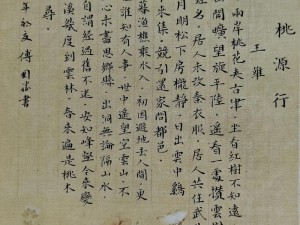 桃源行
王維
兩岸桃花夾古津。坐看紅樹不知遠
間曠望旋平陸。遙看一處攢雲樹
姓名。居人未改秦衣服。居人共住武
月明松下房櫳靜。日出雲中雞
來集。競引還家問都邑。
漁樵乘水入。初因避地去人間。更
誰知有人事。世中遙望空雲山。不
心未盡思鄉縣。出洞無論隔山水。
自謂經過舊不迷。安知峰壑今來變
溪幾度到雲林。春來遍是桃
尋。
年秋立傅書